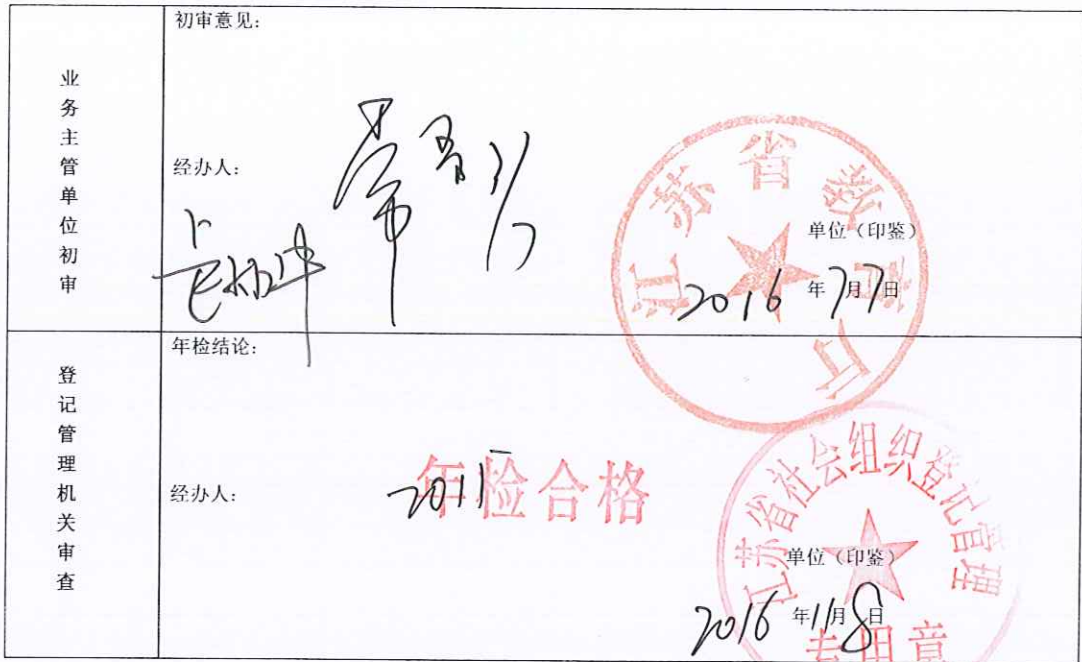 业务主管单位初审
初审意见：
经办人：
江苏省
厅
单位（印鉴）
2016 年 7 月 7 日
登记管理机关审查
年检结论：
经办人：
2015
年检合格
江苏省社会组织登记管理
专用章
单位（印鉴）
2016 年 11 月 8 日